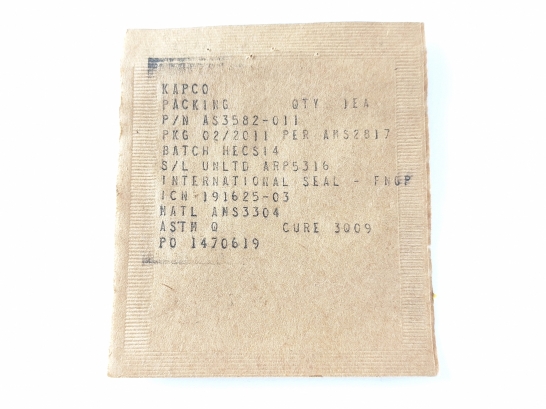 KAPCO
PACKING QTY 1EA
P/N AS3582-011
PKG 02/2011 PER AMS2817
BATCH HECS14
S/L UNLTD ARP5316
INTERNATIONAL SEAL - FNGP
ICN 191625-03
MATL AMS3304
ASTM Q CURE 3Q09
PO 1470619